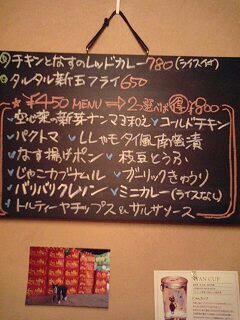 ⑤チキンとなすのレッドカレー780(ライス付)
⑥タルタル新玉フライ650
★¥450 MENU ⇒2つ選べば得¥800
空心菜の新芽ナンマヨ和え ✓コールドチキン
✓パクトマ ✓ししゃもタイ風南蛮漬
✓なす揚げポン ✓枝豆とうふ
✓じゃこカプナムル ✓ガーリックきゅうり
✓バリバリクレソン ✓ミニカレー(ライスなし)
✓トルティーヤチップス&サルサソース
CUP